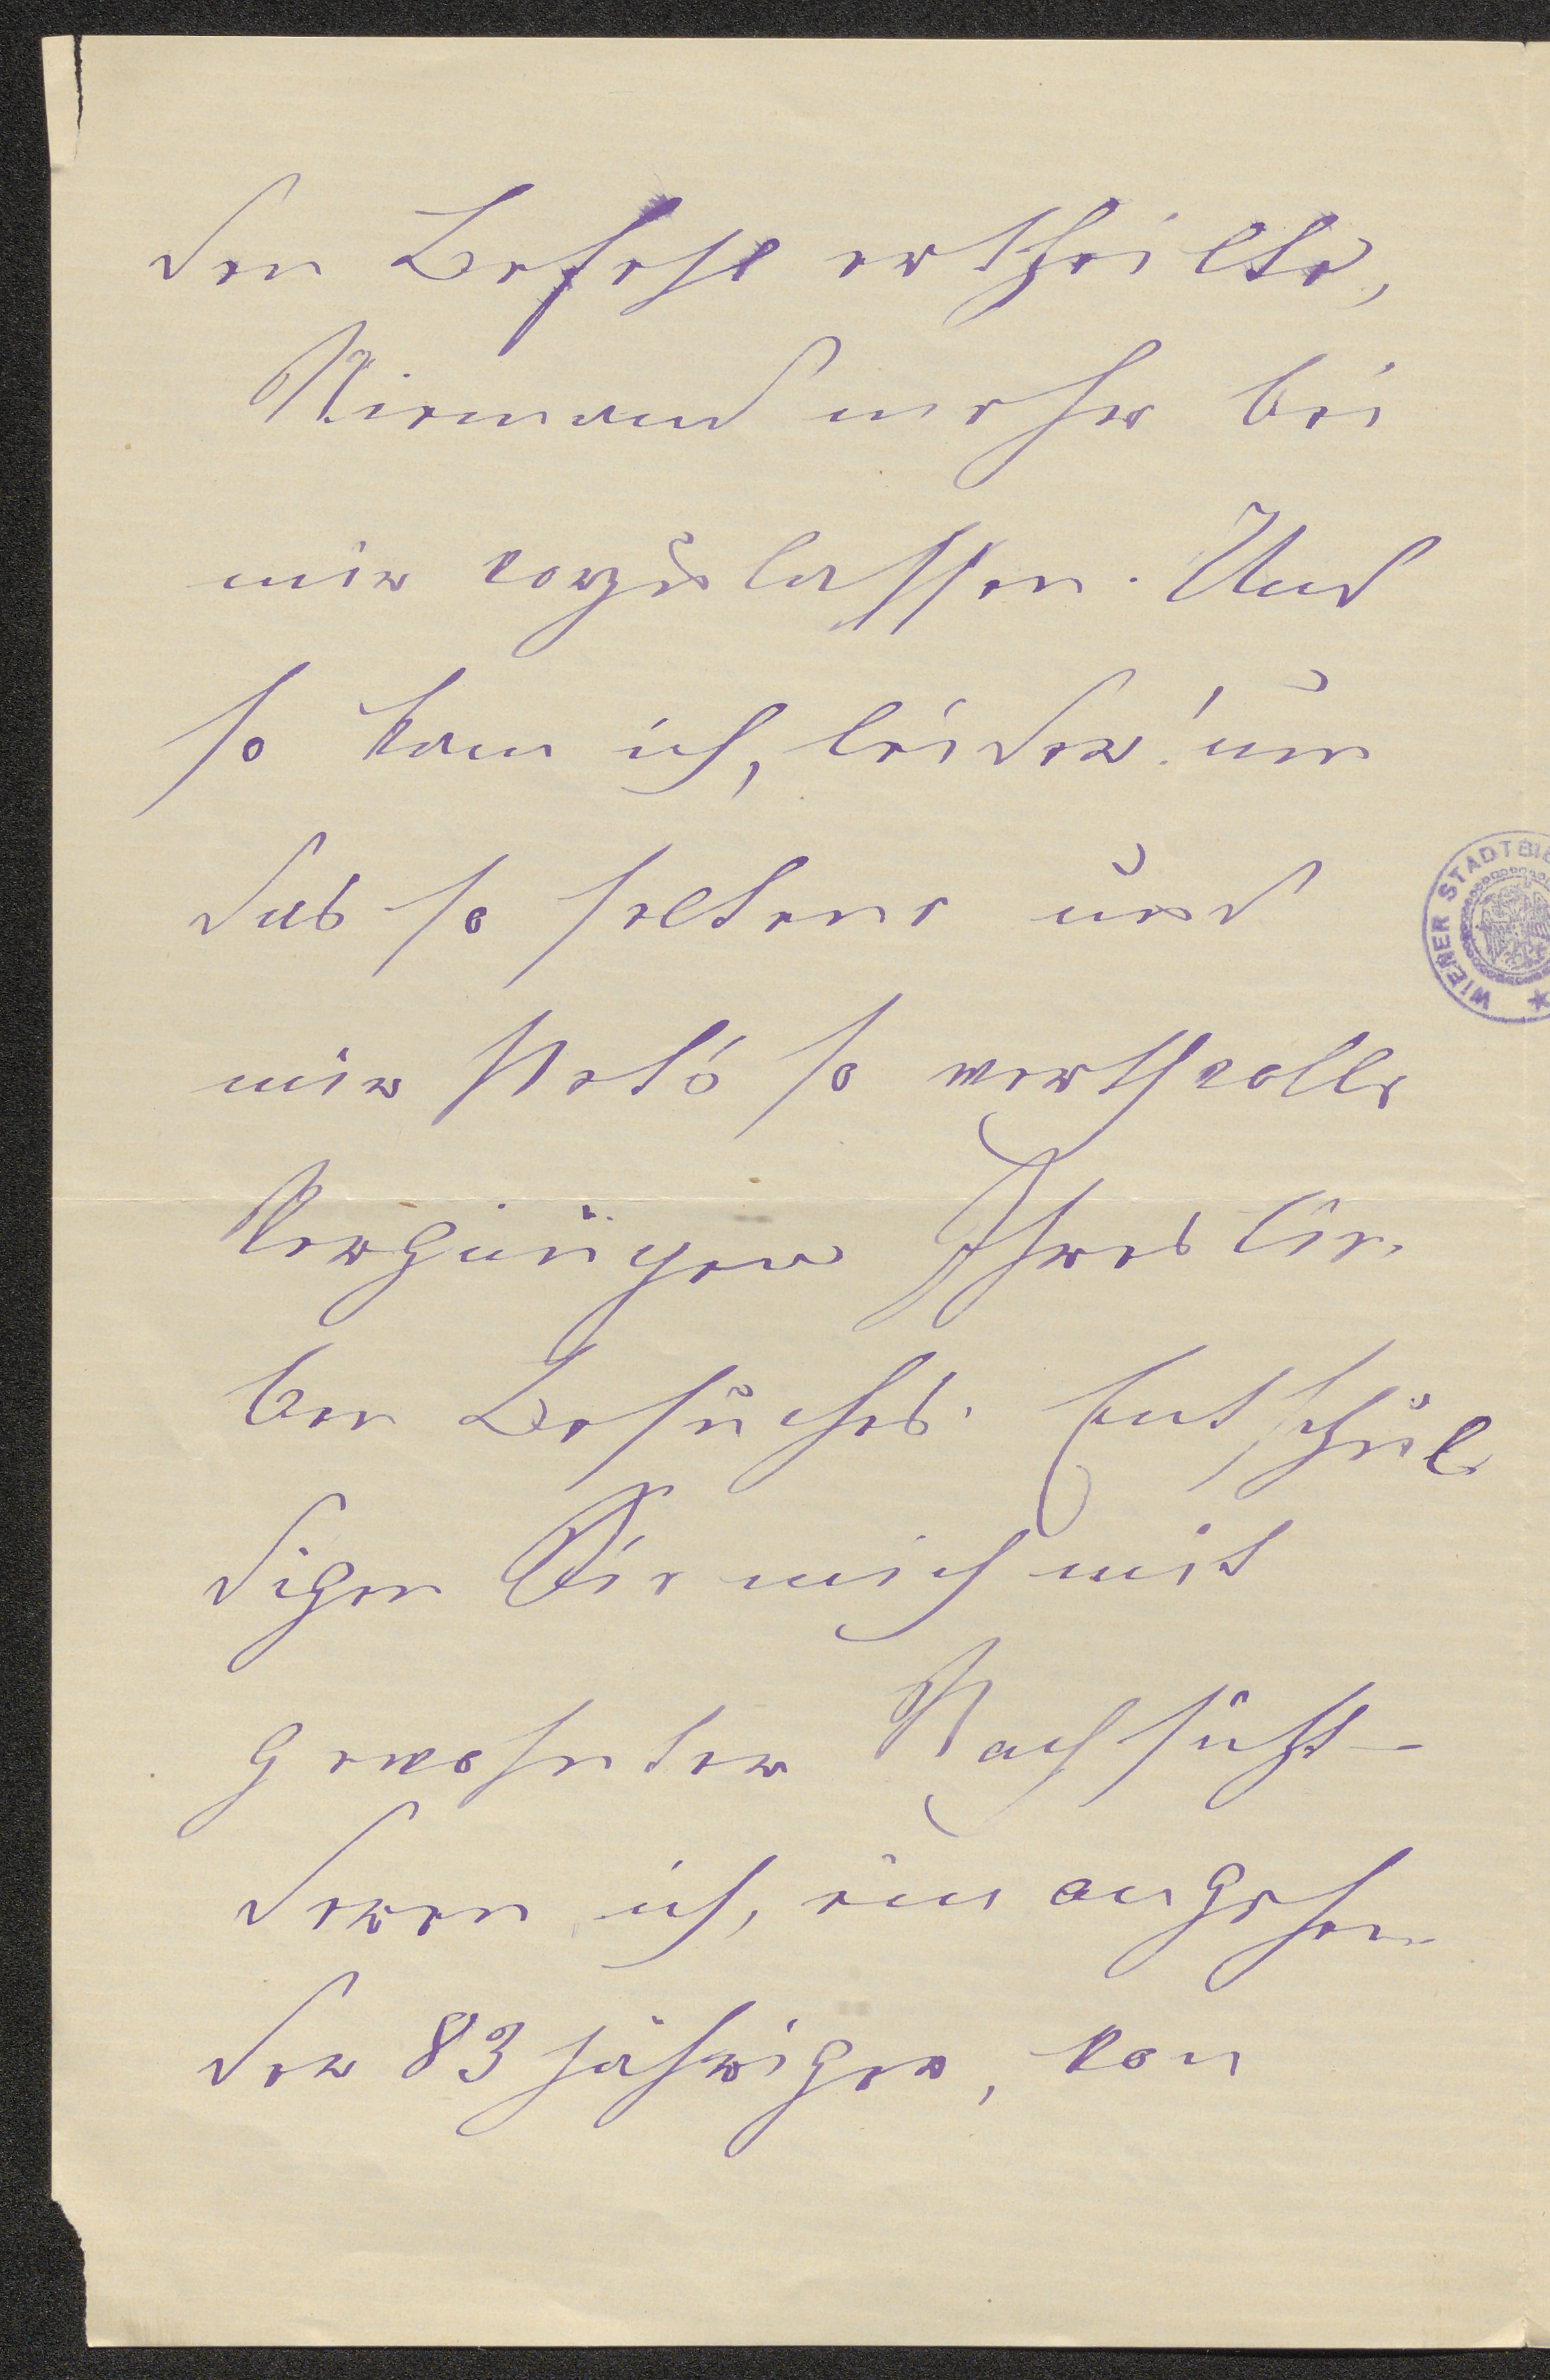 den Befehl ertheilte,
Niemand mehr bei
mir vorzulassen. Und
so kam ich, leider! um
das so seltene und
mir stets so werthvolle
Vergnügen Ihres lie-
ben Besuches. Entschul
digen Sie mich mit
gewohnter Nachsicht –
deren ich, ein angehen
der 83jähriger, von
WIENER STADTBI